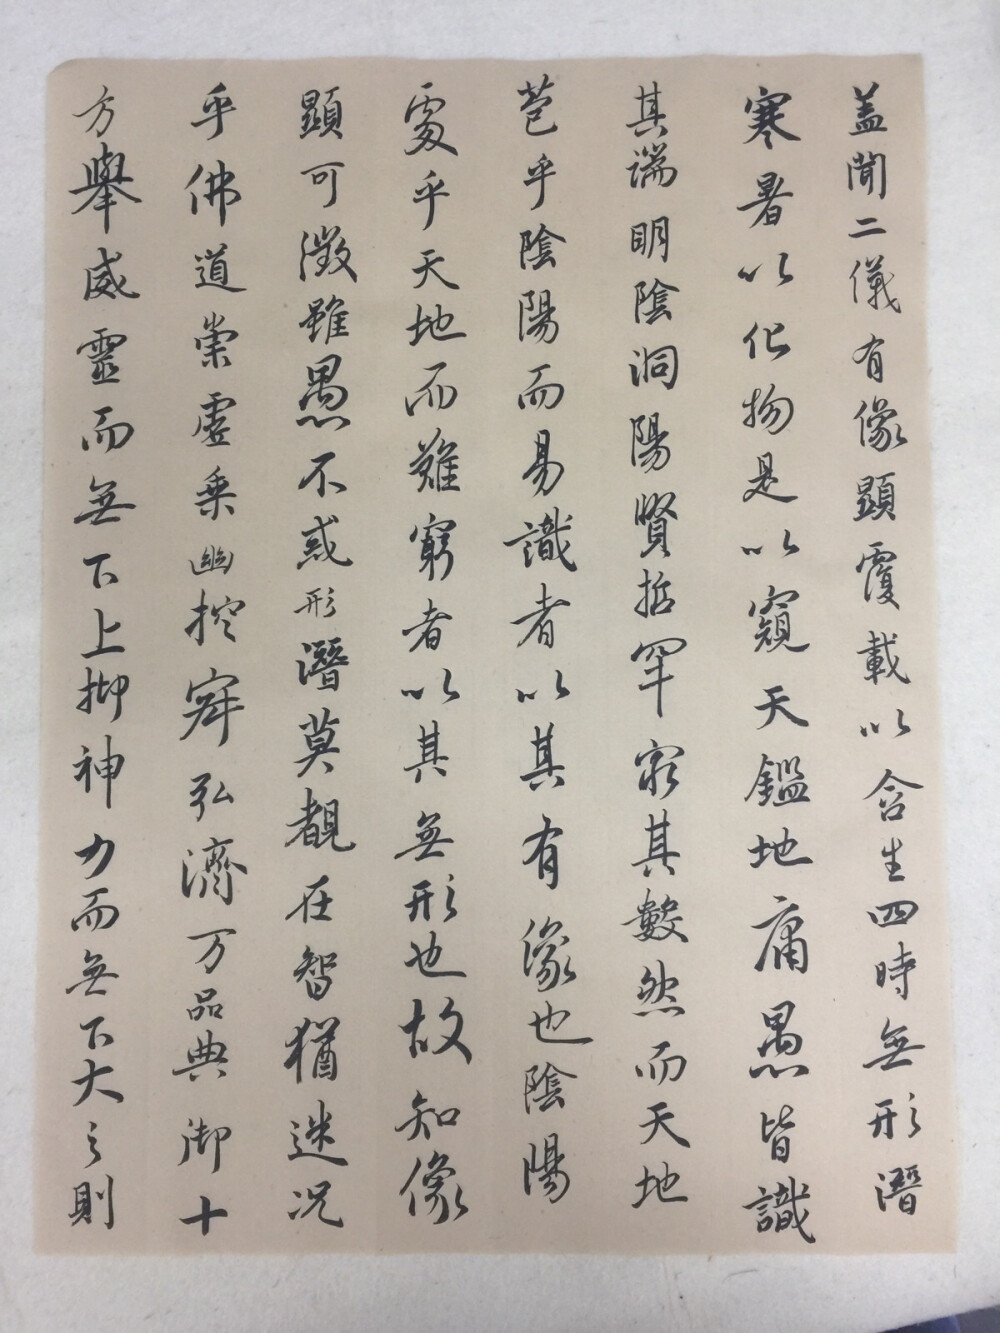 盖聞二儀有像顯覆載以含生四時無形潛
寒暑以化物是以窺天鑑地庸愚皆識
其端明陰洞陽賢哲罕窮其數然而天地
苞乎陰陽而易識者以其有像也陰陽
處乎天地而難窮者以其無形也故知像
顯可徵雖愚不惑形潛莫覩在智猶迷况
乎佛道崇虛乗幽控寂弘濟万品典御十
方舉威靈而無下上抑神力而無下大之則